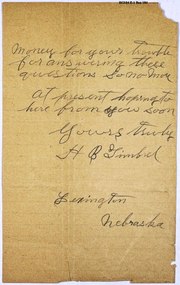 Money for your trouble
for answering these
questions So no more
at present hoping to
here from you soon
Yours truly
H B
Lexington
Nebraska